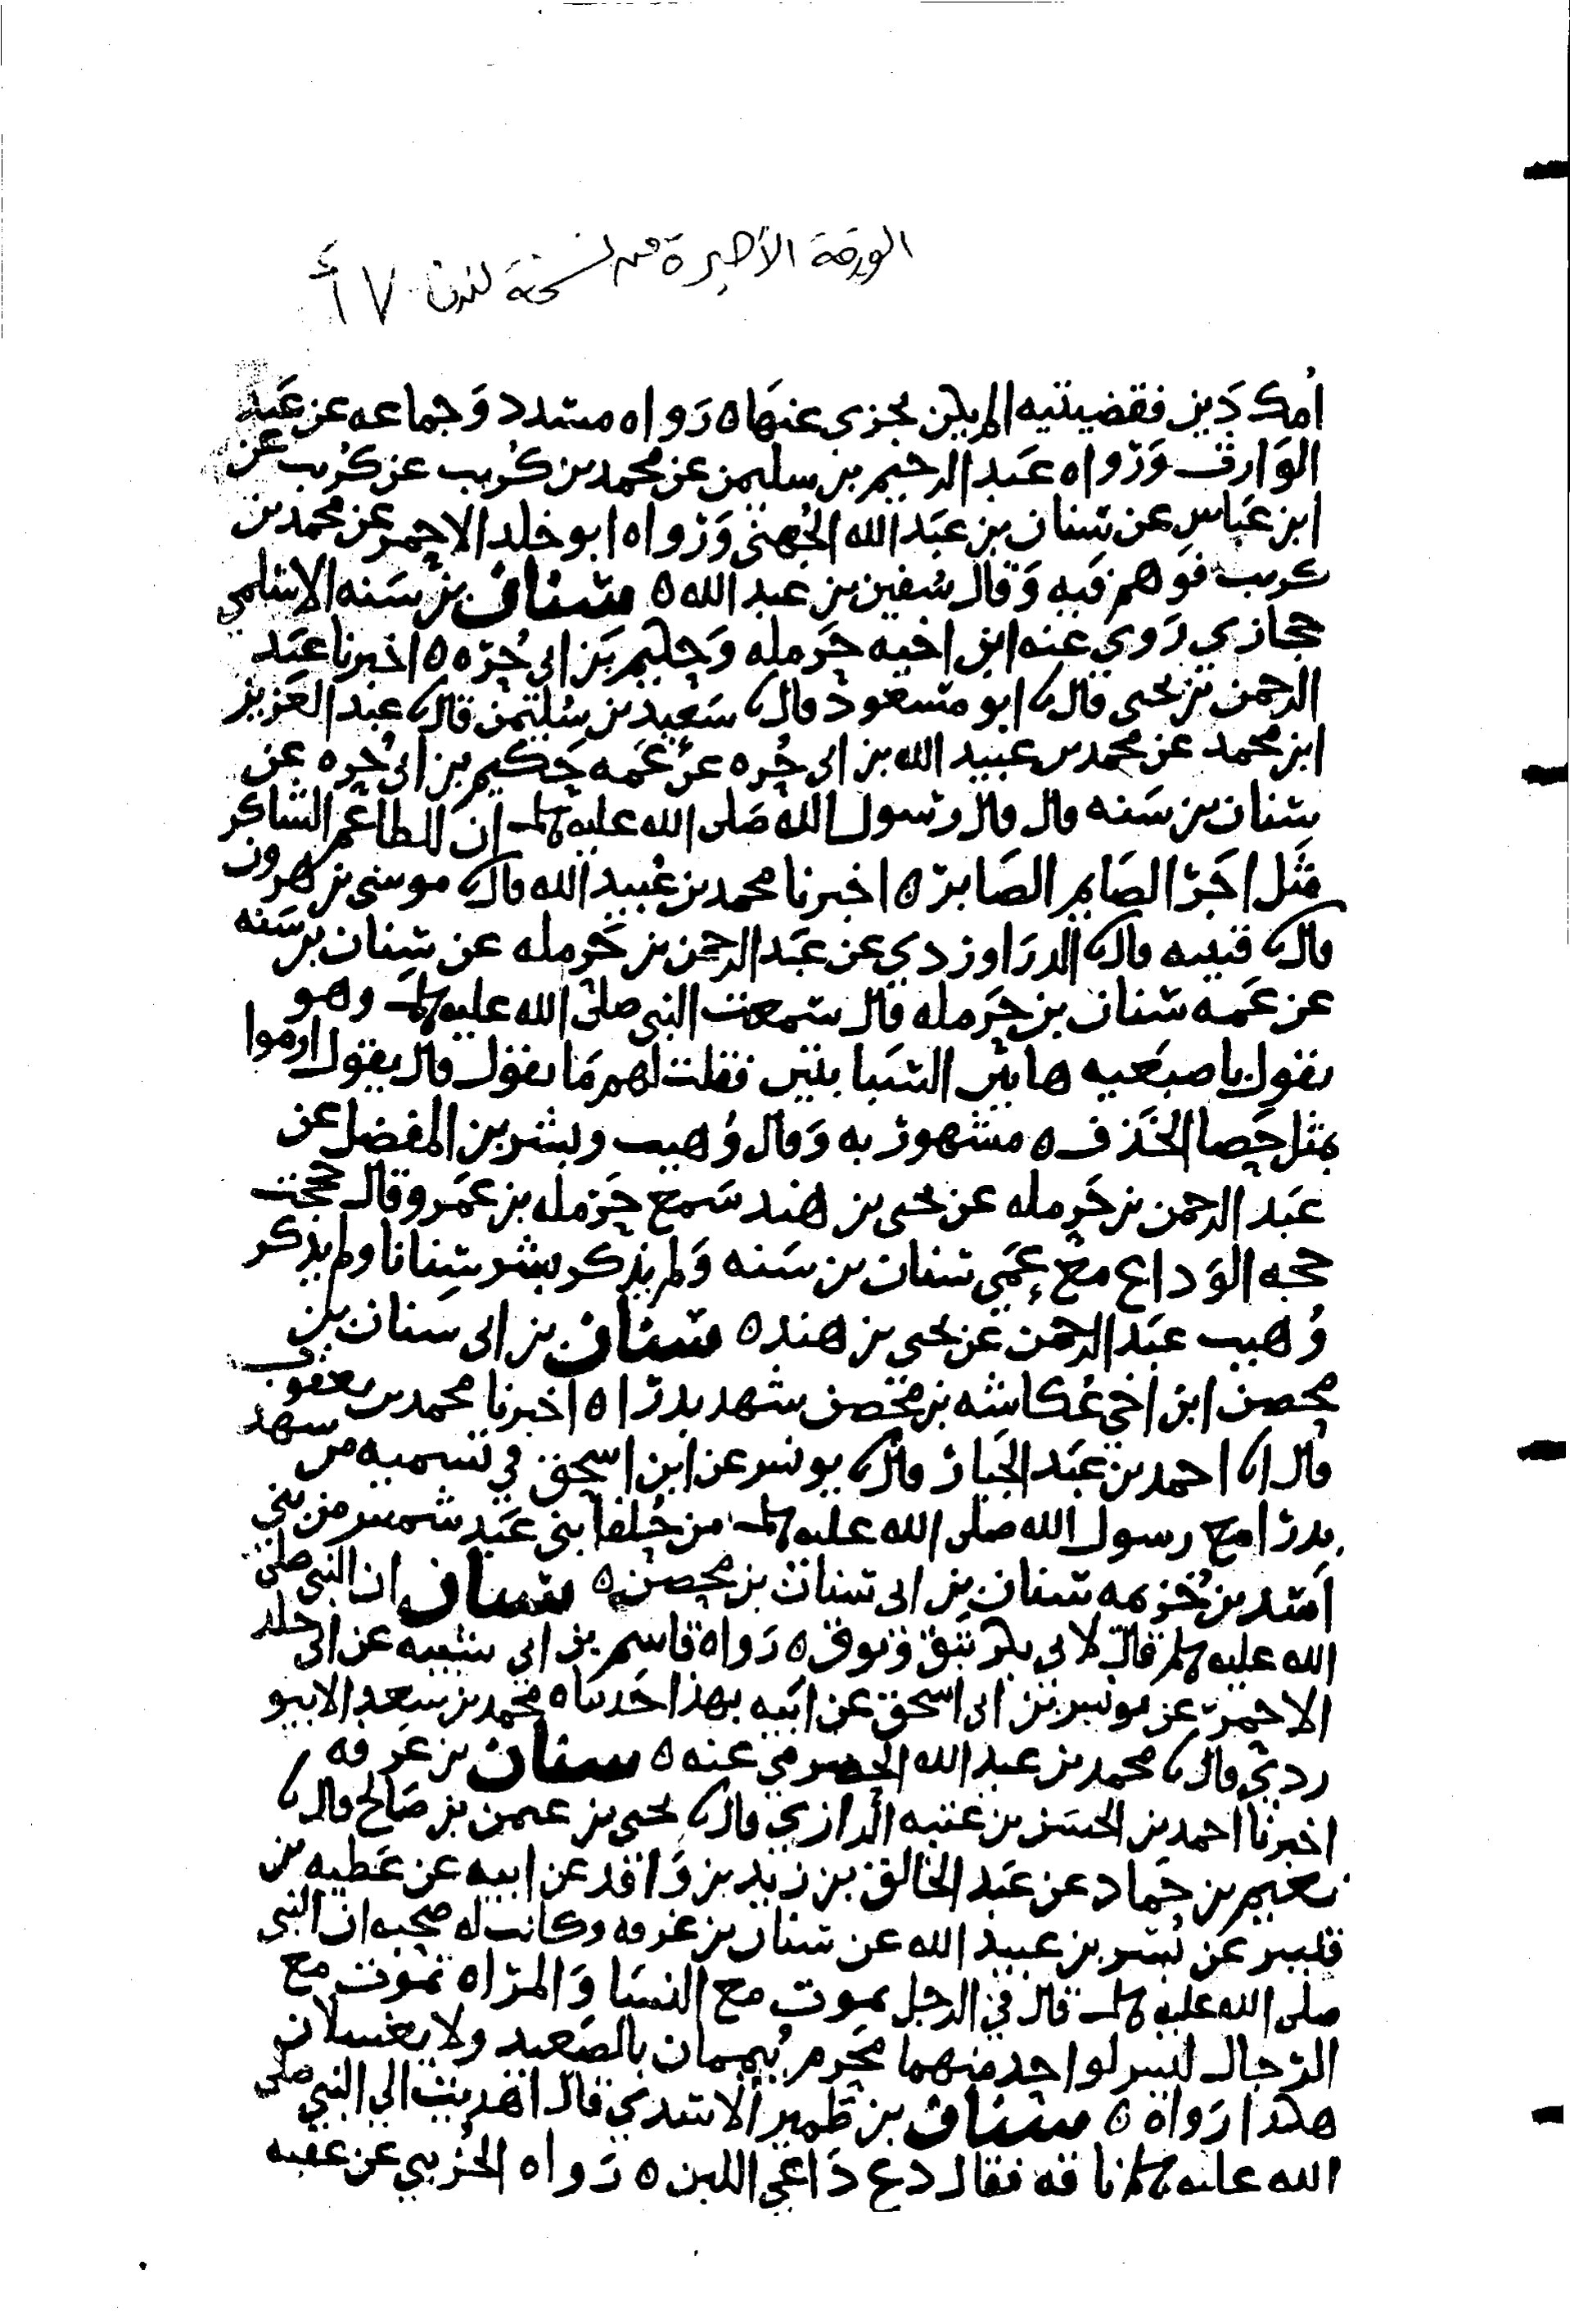 الورقة الأخيرة من نسخة لندن ٧ أ
امك دين فقضيتيه الم يكن يجزي عنها ه رواه مسدد وجماعه عن عبد
الوارث ورواه عبد الرحيم بن سليمن عن محمد بن كريب عن كريب عن
ابن عباس عن سنان بن عبد الله الجهني ورواه ابو خلد الاحمر عن محمد بن
كريب فوهم فيه وقال سفين بن عبد الله ه سنان بن سنه الاسلمي
حجازي روي عنه ابن اخيه حرمله وحكيم بن ابي حره ه اخبرنا عبد
الرحمن بن يحيى قال ابو مسعود قال سعيد بن سليمن قال عبد العزيز
ابن محمد عن محمد بن عبيد الله بن ابي حره عن عمه حكيم بن ابي حره عن
سنان بن سنه قال قال رسول الله صلى الله عليه ان للطاعم الشاكر
مثل اجر الصايم الصابر ه اخبرنا محمد بن عبيد الله قال موسى بن هرون
قال قتيبه قال الدراوردي عن عبد الرحمن بن حرمله عن سنان بن سنه
عن عمه سنان بن حرمله قال سمعت النبي صلى الله عليه وهو
يقول باصبعيه هاتين السبابتين فقلت لهم ما يقول قال يقول ارموا
بمثل حصا الخذف ه مشهور به وقال وهيب وبشر بن المفضل عن
عبد الرحمن بن حرمله عن يحيى بن هند سمع حرمله بن عمرو قال حججت
حجه الوداع مع عمي سنان بن سنه ولم يذكر بشر سنانا ولم يذكر
وهيب عبد الرحمن عن يحيى بن هند ه سنان بن ابي سنان بن
محصن ابن اخي عكاشه بن محصن شهد بدرا ه اخبرنا محمد بن يعقوب
قال احمد بن عبد الجبار قال يونس عن ابن اسحق في تسميه من شهد
بدرا مع رسول الله صلى الله عليه من حلفا بني عبد شمس من بني
اسد بن خزيمه سنان بن ابي سنان بن محصن ه سنان ان النبي صلى
الله عليه قال لابي بكر تنق وتوق ه رواه قاسم بن ابي شيبه عن ابي خلد
الاحمر عن يونس بن ابي اسحق عن ابيه بهذا حدثناه محمد بن سعد الابيو
ردي قال محمد بن عبد الله الحضرمي عنه ه سنان بن عرفه
اخبرنا احمد بن الحسن بن عتبه الرازي قال يحيى بن عثمن بن صالح قال
نعيم بن حماد عن عبد الخالق بن زيد بن واقد عن ابيه عن عطيه بن
قيس عن بسر بن عبيد الله عن سنان بن عرفه وكانت له صحبه ان النبي
صلى الله عليه قال في الرجل يموت مع النسا والمراه تموت مع
الرجال ليس لواحد منهما محرم ييممان بالصعيد ولا يغسلان
هكذا رواه ه سنان بن ظهير الاسدي قال اهديت الى النبي صلى
الله عليه ناقه فقال دع داعي اللبن ه رواه الخريبي عن عقبه